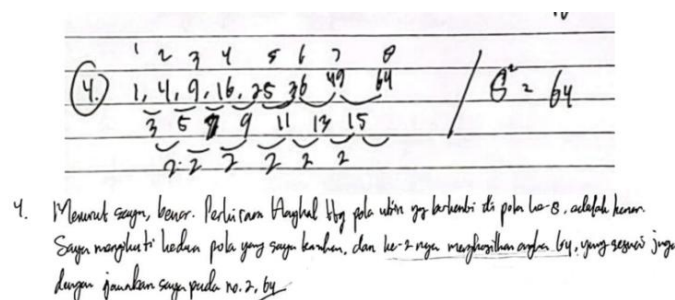 1 2 3 4 5 6 7 8
4. 1, 4, 9, 16, 25 36 49 64 / 8² = 64
3 5 7 9 11 13 15
2 2 2 2 2 2
4. Menurut saya, benar. Perkiraan Hangkal ttg pola ubin yg berhenti di pola ke-8, adalah benar.
Saya mengikuti kedua pola yang saya temukan, dan ke-2 nya menghasilkan angka 64, yang sesuai juga
dengan jawaban saya pada no. 2, 64